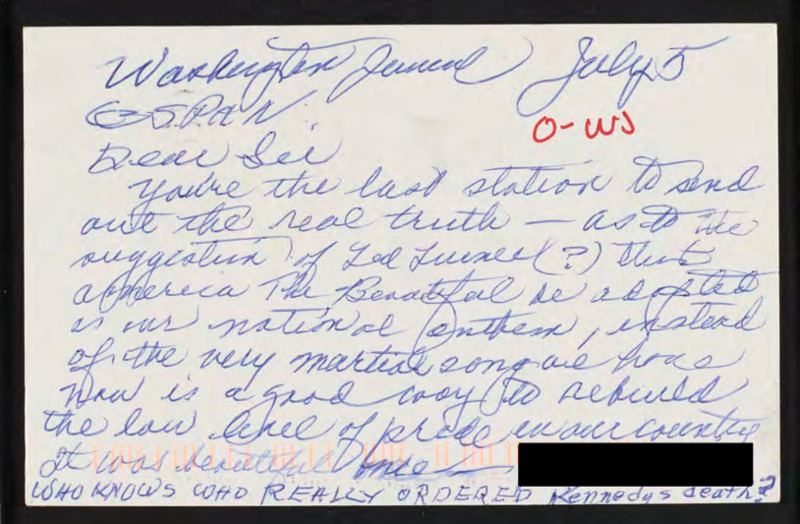 Washington Journal July 5
CSPAN.
O-WJ
Dear Sir
You're the last station to send
out the real truth — as to the
suggestion of Ted Turner (?) that
America The Beautiful be adopted
as our national anthem, instead
of the very martial song we have
now is a good way to rebuild
the low level of pride in our country
It was beautiful once —
WHO KNOWS WHO REALLY ORDERED Kennedys death?